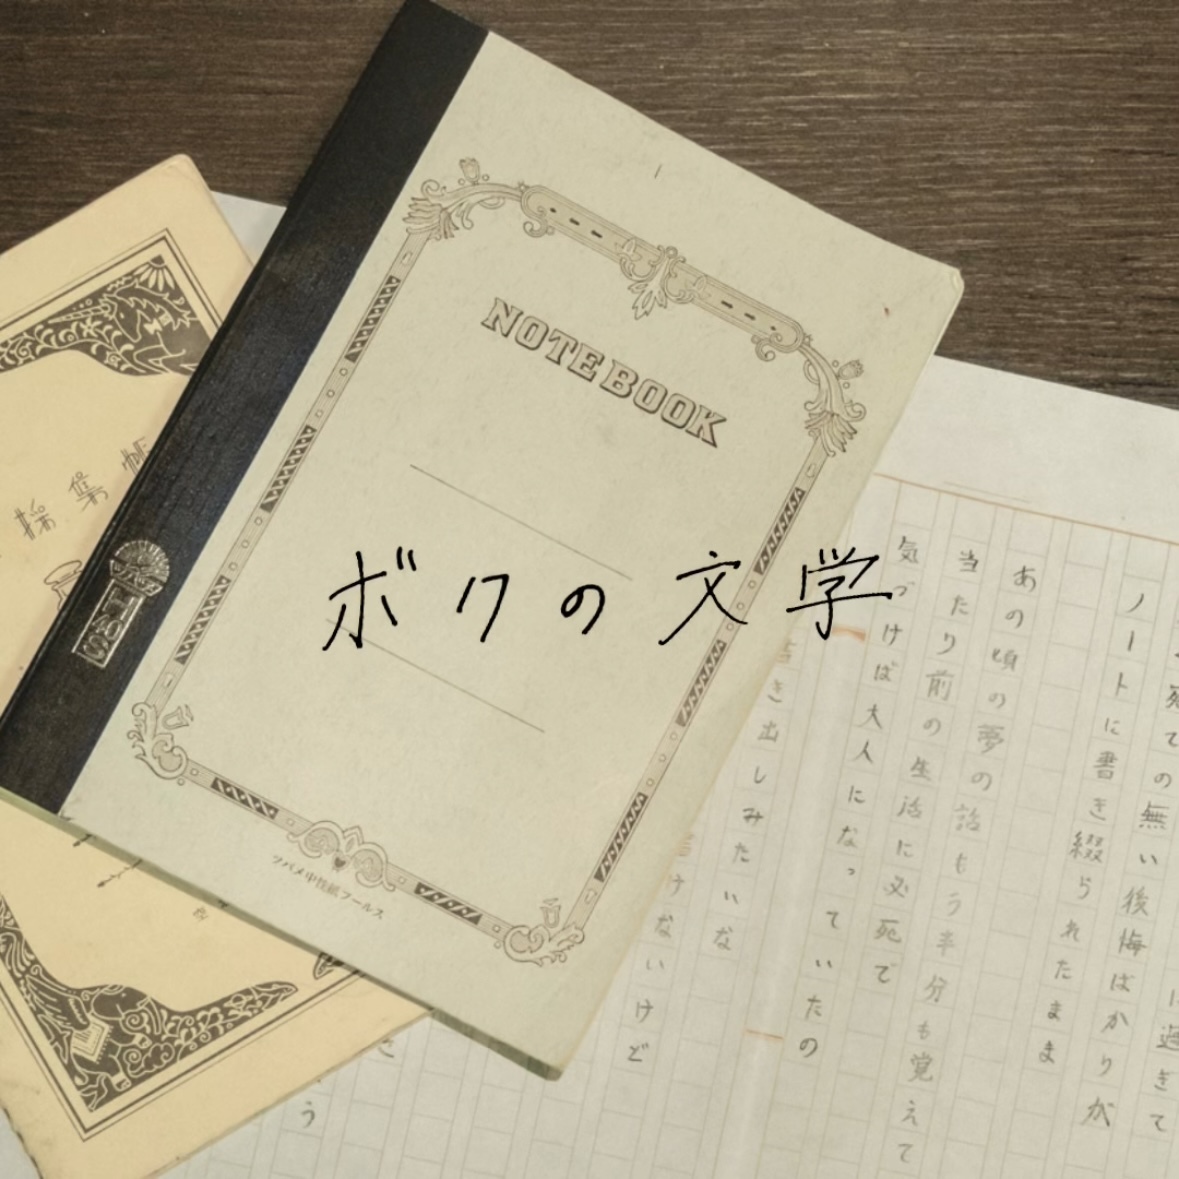 NOTEBOOK
ボクの文学
ツバメ中性紙フールス
採集帳
ノートに書き綴られたまま
あの頃の夢の話もう半分も覚えて
当たり前の生活に必死で
気づけば大人になっていたの
き出しみたいな
けないけど
ての無い後悔ばかりが
に過ぎて
う